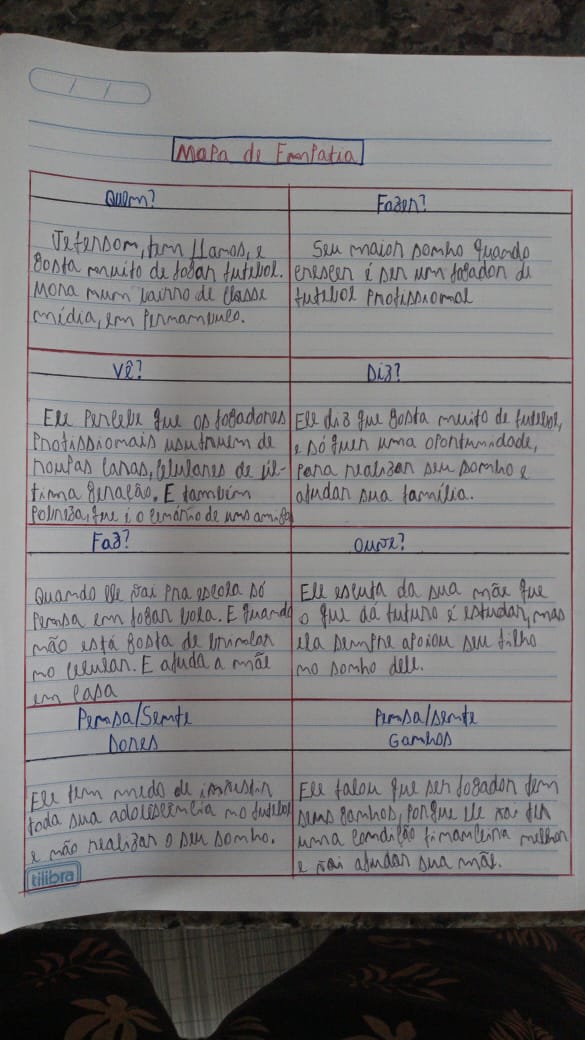 Mapa de Empatia
Quem?
Jefersom, tem 11 anos, e
gosta muito de jogar futebol.
Mora num bairro de classe
média, em Pernambuco.
Fazer?
Seu maior sonho quando
crescer é ser um jogador de
futebol profissional
Vê?
Ele percebe que os jogadores
profissionais usufruem de
roupas caras, celulares de úl-
tima geração. E também
pobreza, que é o cenário de uns amigos
Diz?
Ele diz que gosta muito de futebol,
e só quer uma oportunidade,
para realizar seu sonho e
ajudar sua família.
Faz?
Quando ele vai pra escola só
pensa em jogar bola. E quando
não está gosta de brincar
no celular. E ajuda a mãe
em casa
Ouve?
Ele escuta da sua mãe que
o que dá futuro é estudar, mas
ela sempre apoiou seu filho
no sonho dele.
Pensa/Sente
Dores
Ele tem medo de
toda sua adolescência no futebol
e não realizar o seu sonho.
Pensa/sente
Ganhos
Ele falou que ser jogador tem
seus ganhos, porque ele vai ter
uma condição financeira melhor
e vai ajudar sua mãe.
tilibra